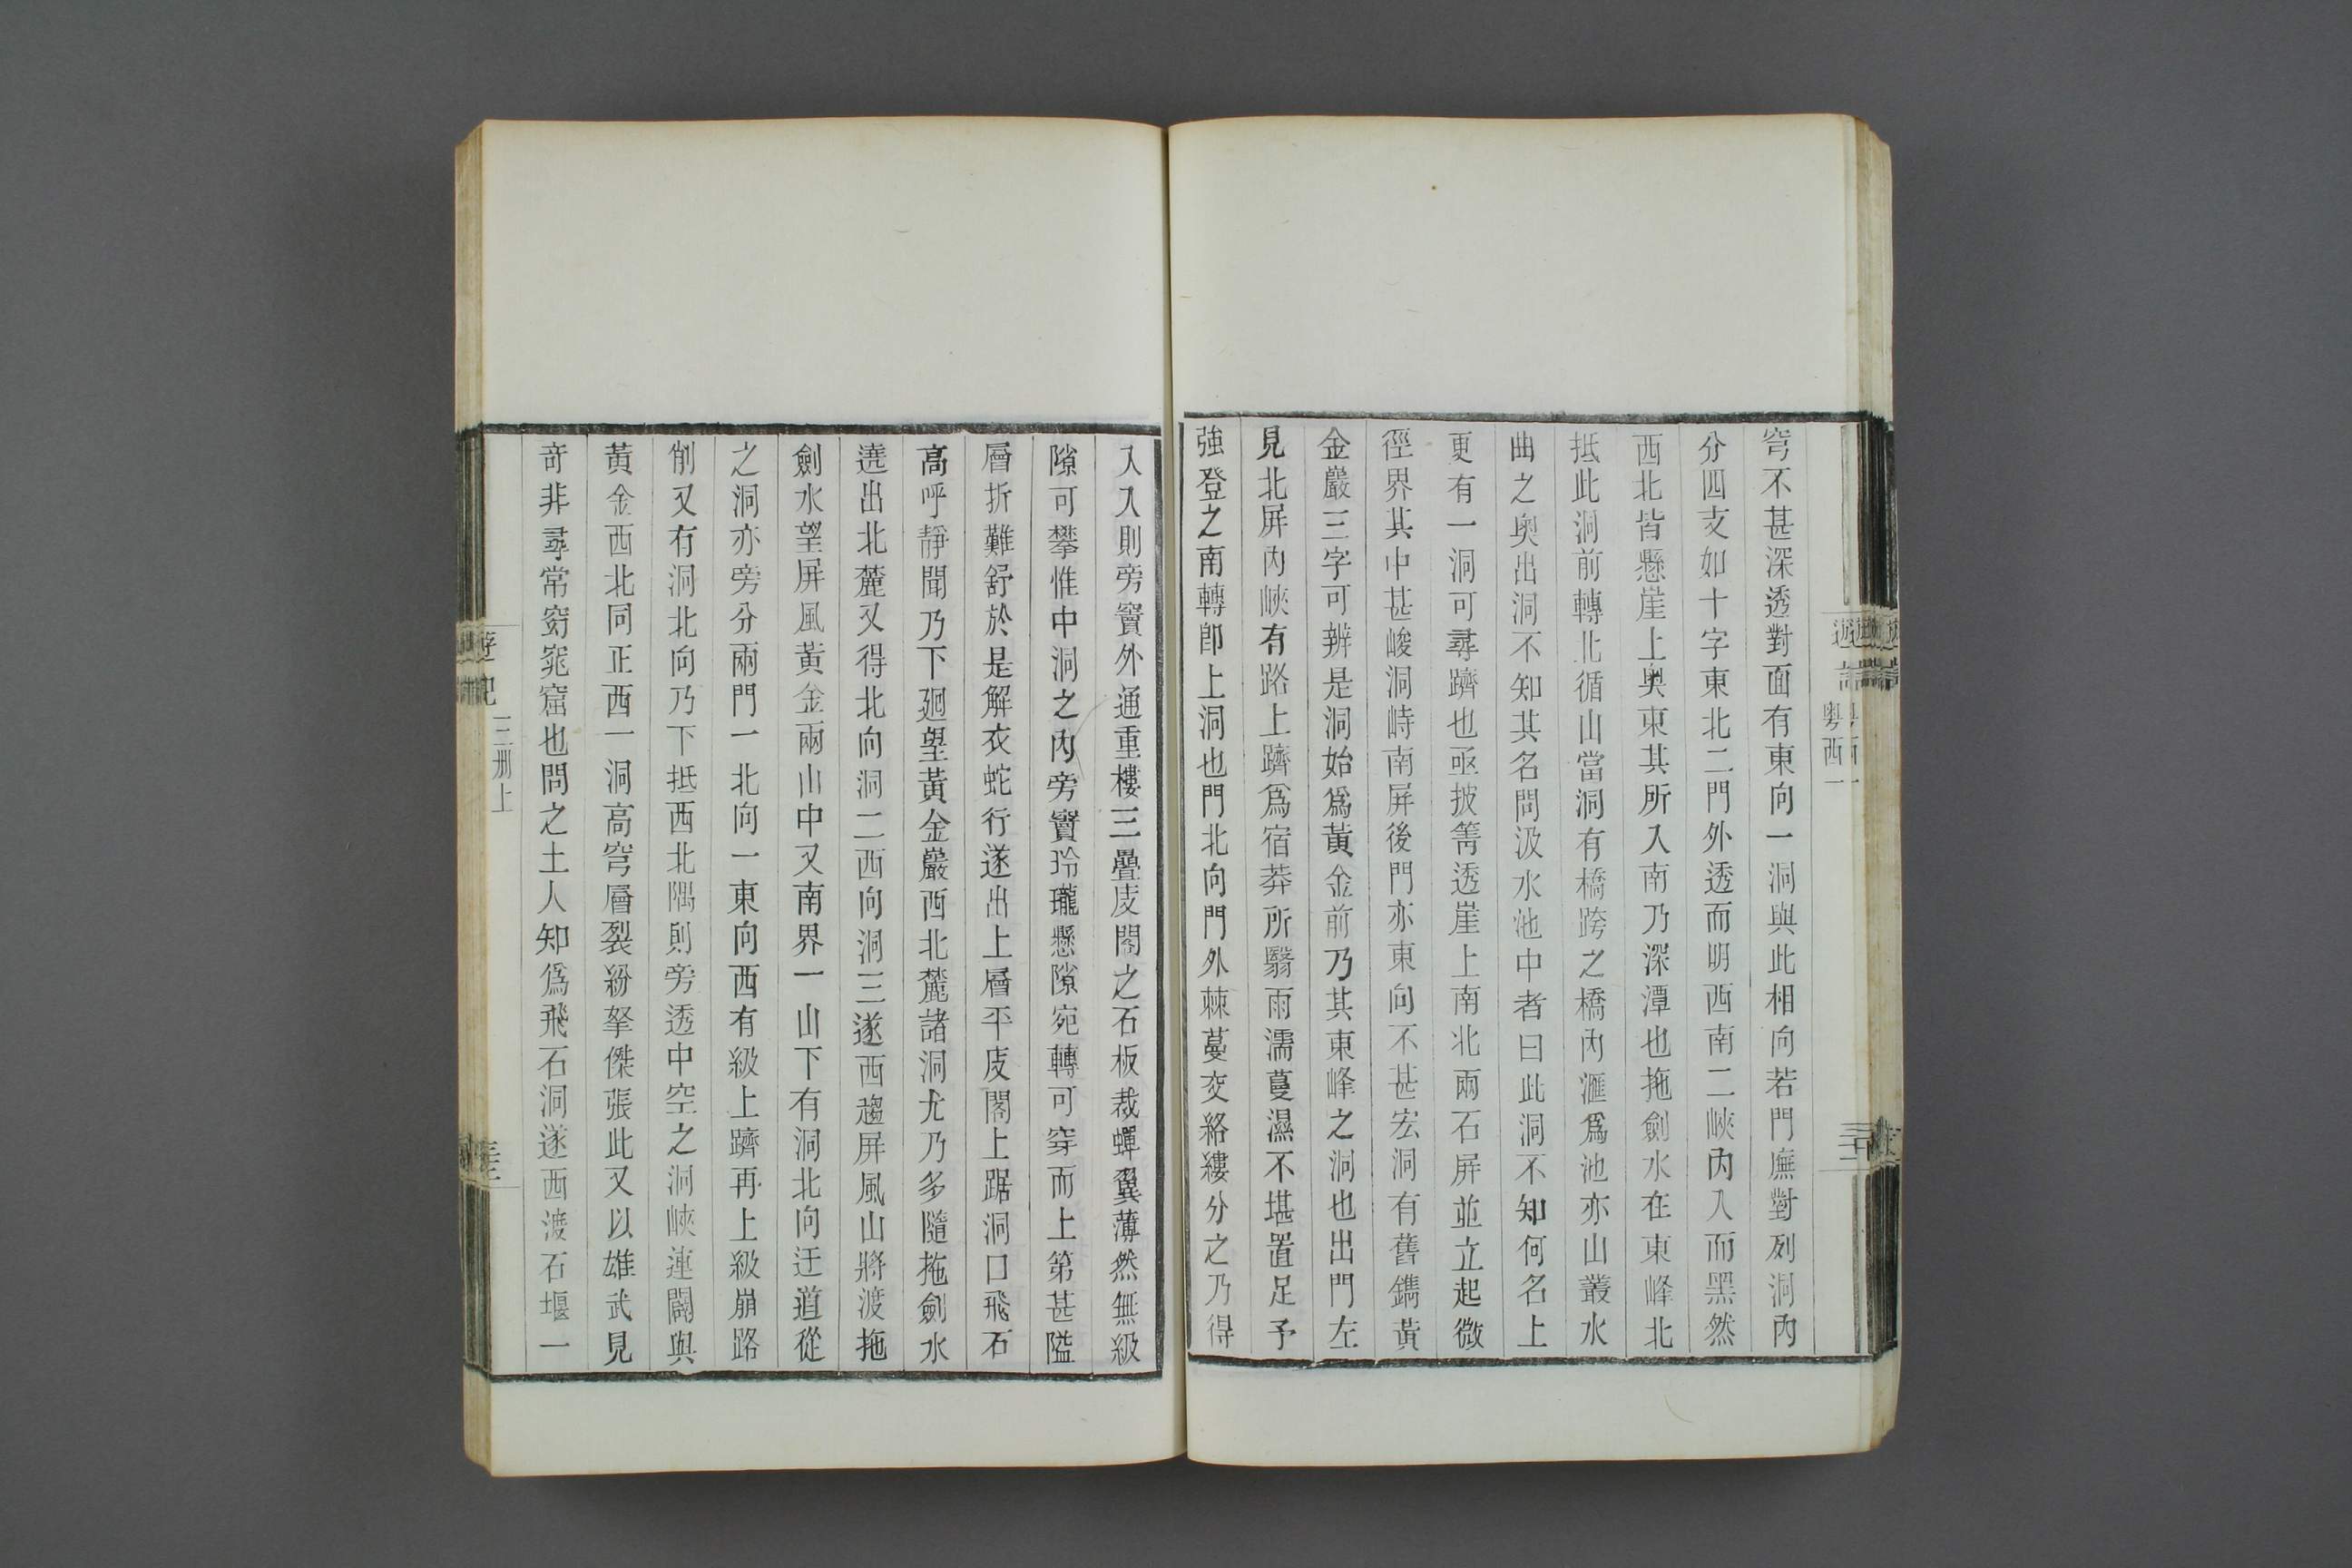 穹不甚深透對面有東向一洞與此相向若門廡對列洞內
分四支如十字東北二門外透而明西南二峽內入而黑然
西北皆懸崖上奧東其所入南乃深潭也拖劍水在東峰北
抵此洞前轉北循山當洞有橋跨之橋內滙爲池亦山叢水
曲之奧出洞不知其名問汲水池中者曰此洞不知何名上
更有一洞可尋躋也亟披箐透崖上南北兩石屏並立起微
徑界其中甚峻洞峙南屏後門亦東向不甚宏洞有舊鐫黃
金巖三字可辨是洞始爲黃金前乃其東峰之洞也出門左
見北屏內峽有路上躋爲宿莽所翳雨濡蔓濕不堪置足予
強登之南轉卽上洞也門北向門外棘蔓交絡縷分之乃得
入入則旁竇外通重樓三疊庋閣之石板裁蟬翼薄然無級
隙可攀惟中洞之內旁竇玲瓏懸隙宛轉可穿而上第甚隘
層折難舒於是解衣蛇行遂出上層平庋閣上踞洞口飛石
高呼靜聞乃下廻望黃金巖西北麓諸洞尤乃多隨拖劍水
遶出北麓又得北向洞二西向洞三遂西趨屏風山將渡拖
劍水望屏風黃金兩山中又南界一山下有洞北向迂道從
之洞亦旁分兩門一北向一東向西有級上躋再上級崩路
削又有洞北向乃下抵西北隅則旁透中空之洞峽連闢與
黃金西北同正西一洞高穹層裂紛拏傑張此又以雄武見
奇非尋常窈窕窟也問之土人知爲飛石洞遂西渡石堰一
遊記
三冊上
粵西一